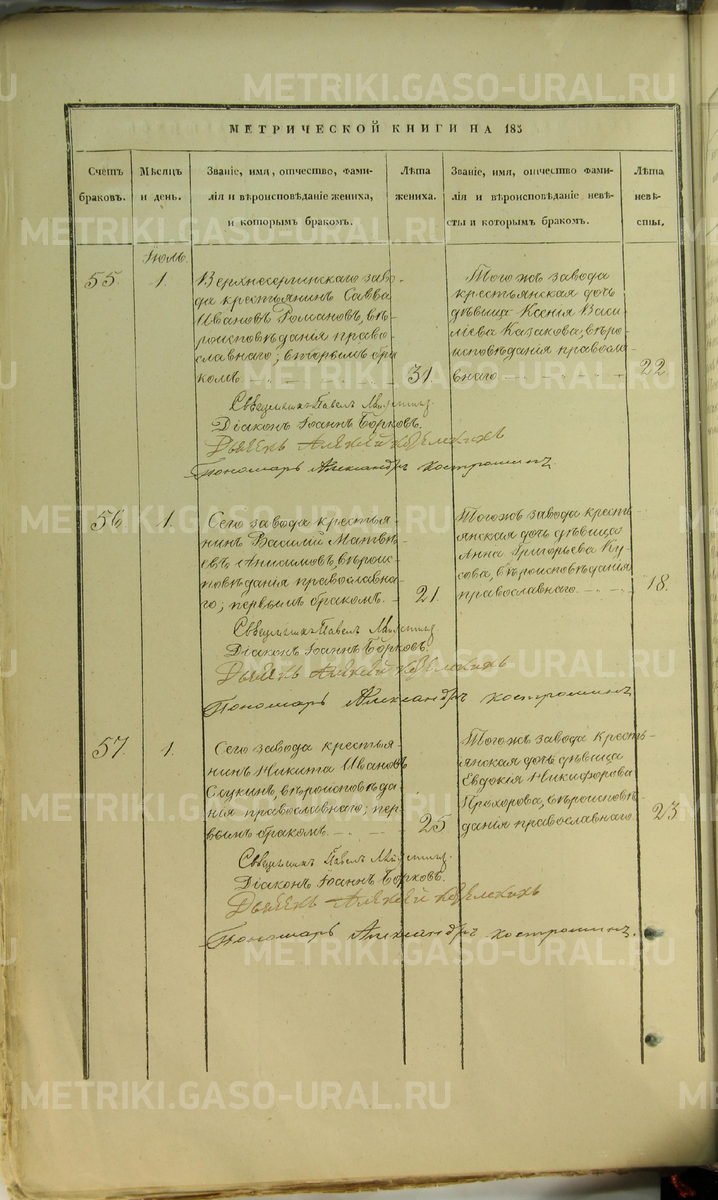 МЕТРИЧЕСКОЙ КНИГИ НА 185
Счетъ
браковъ.
Мѣсяцъ
и день.
Званіе, имя, отчество, фами-
лія и вѣроисповѣданіе жениха,
и которымъ бракомъ.
Лѣта
жениха.
Званіе, имя, отчество фами-
лія и вѣроисповѣданіе невѣ-
сты и которымъ бракомъ.
Лѣта
невѣ-
сты.
Іюль.
55
1.
Верхнесергинскаго заво-
да крестьянинъ Савва
Ивановъ Романовъ, вѣ-
роисповѣданія право-
славнаго; вторымъ бра
комъ
31.
Тогожъ завода
крестьянская дочь
дѣвица Ксенія Васи
ліева Казакова, вѣро
исповѣданія правосла
внаго
22.
Священникъ Павелъ
Діаконъ Іоаннъ Борковъ.
Дьячекъ Алексѣй
Пономарь Александръ Костроминъ.
56
1.
Сего завода крестья-
нинъ Василій Матвѣ
евъ Анисимовъ, вѣроис-
повѣданія православна-
го; первымъ бракомъ.
21.
Тогожъ завода кресть-
янская дочь дѣвица
Анна Григорьева Ку
сова, вѣроисповѣданія
православнаго.
18.
Священникъ Павелъ
Діаконъ Іоаннъ Борковъ.
Дьячекъ Алексѣй
Пономарь Александръ Костроминъ
57.
1.
Сего завода крестья-
нинъ Никита Ивановъ
вѣроисповѣда
нія православнаго; пер-
вымъ бракомъ.
25
Тогожъ завода кресть-
янская дочь дѣвица
Евдокія Никифорова
Прохорова, вѣроисповѣ
данія православнаго.
23
Священникъ Павелъ
Діаконъ Іоаннъ Борковъ.
Дьячекъ Алексѣй
Пономарь Александръ Костроминъ.
METRIKI.GASO-URAL.RU
METRIKI.GASO-URAL.RU
METRIKI.GASO-URAL.RU
METRIKI.GASO-URAL.RU
METRIKI.GASO-URAL.RU
METRIKI.GASO-URAL.RU
METRIKI.GASO-URAL.RU
METRIKI.GASO-URAL.RU